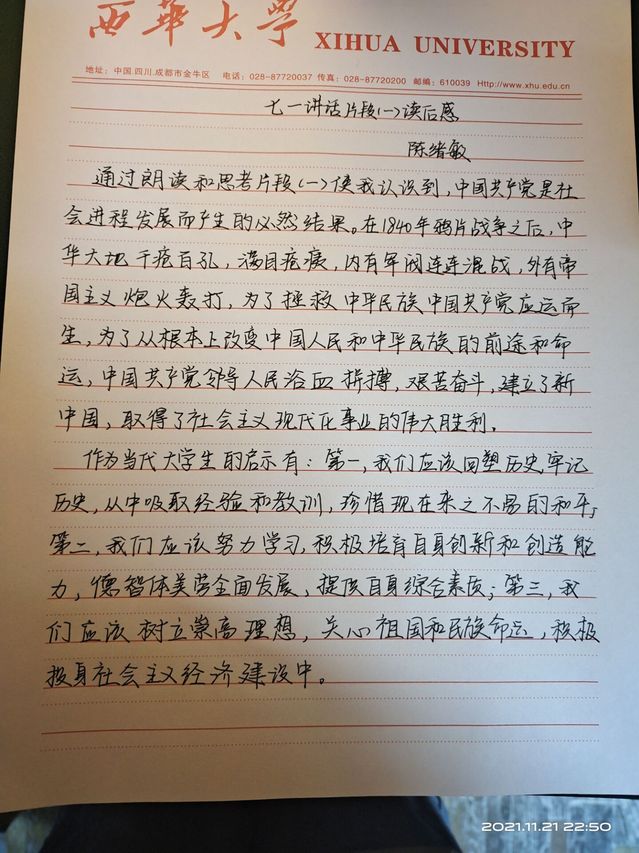 西华大学 XIHUA UNIVERSITY
地址：中国.四川.成都市金牛区 电话：028-87720037 传真：028-87720200 邮编：610039 Http://www.xhu.edu.cn
七一讲话片段(一)读后感
陈绪敏
通过朗读和思考片段(一)使我认识到，中国共产党是社
会进程发展而产生的必然结果。在1840年鸦片战争之后，中
华大地千疮百孔，满目疮痍，内有军阀连连混战，外有帝
国主义炮火轰打，为了拯救中华民族中国共产党应运而
生，为了从根本上改变中国人民和中华民族的前途和命
运，中国共产党领导人民浴血拼搏，艰苦奋斗，建立了新
中国，取得了社会主义现代化事业的伟大胜利。
作为当代大学生的启示有：第一，我们应该回塑历史，牢记
历史，从中吸取经验和教训，珍惜现在来之不易的和平；
第二，我们应该努力学习，积极培育自身创新和创造能
力，德智体美劳全面发展，提促自身综合素质；第三，我
们应该树立崇高理想，关心祖国和民族命运，积极
投身社会主义经济建设中。
2021.11.21 22:50